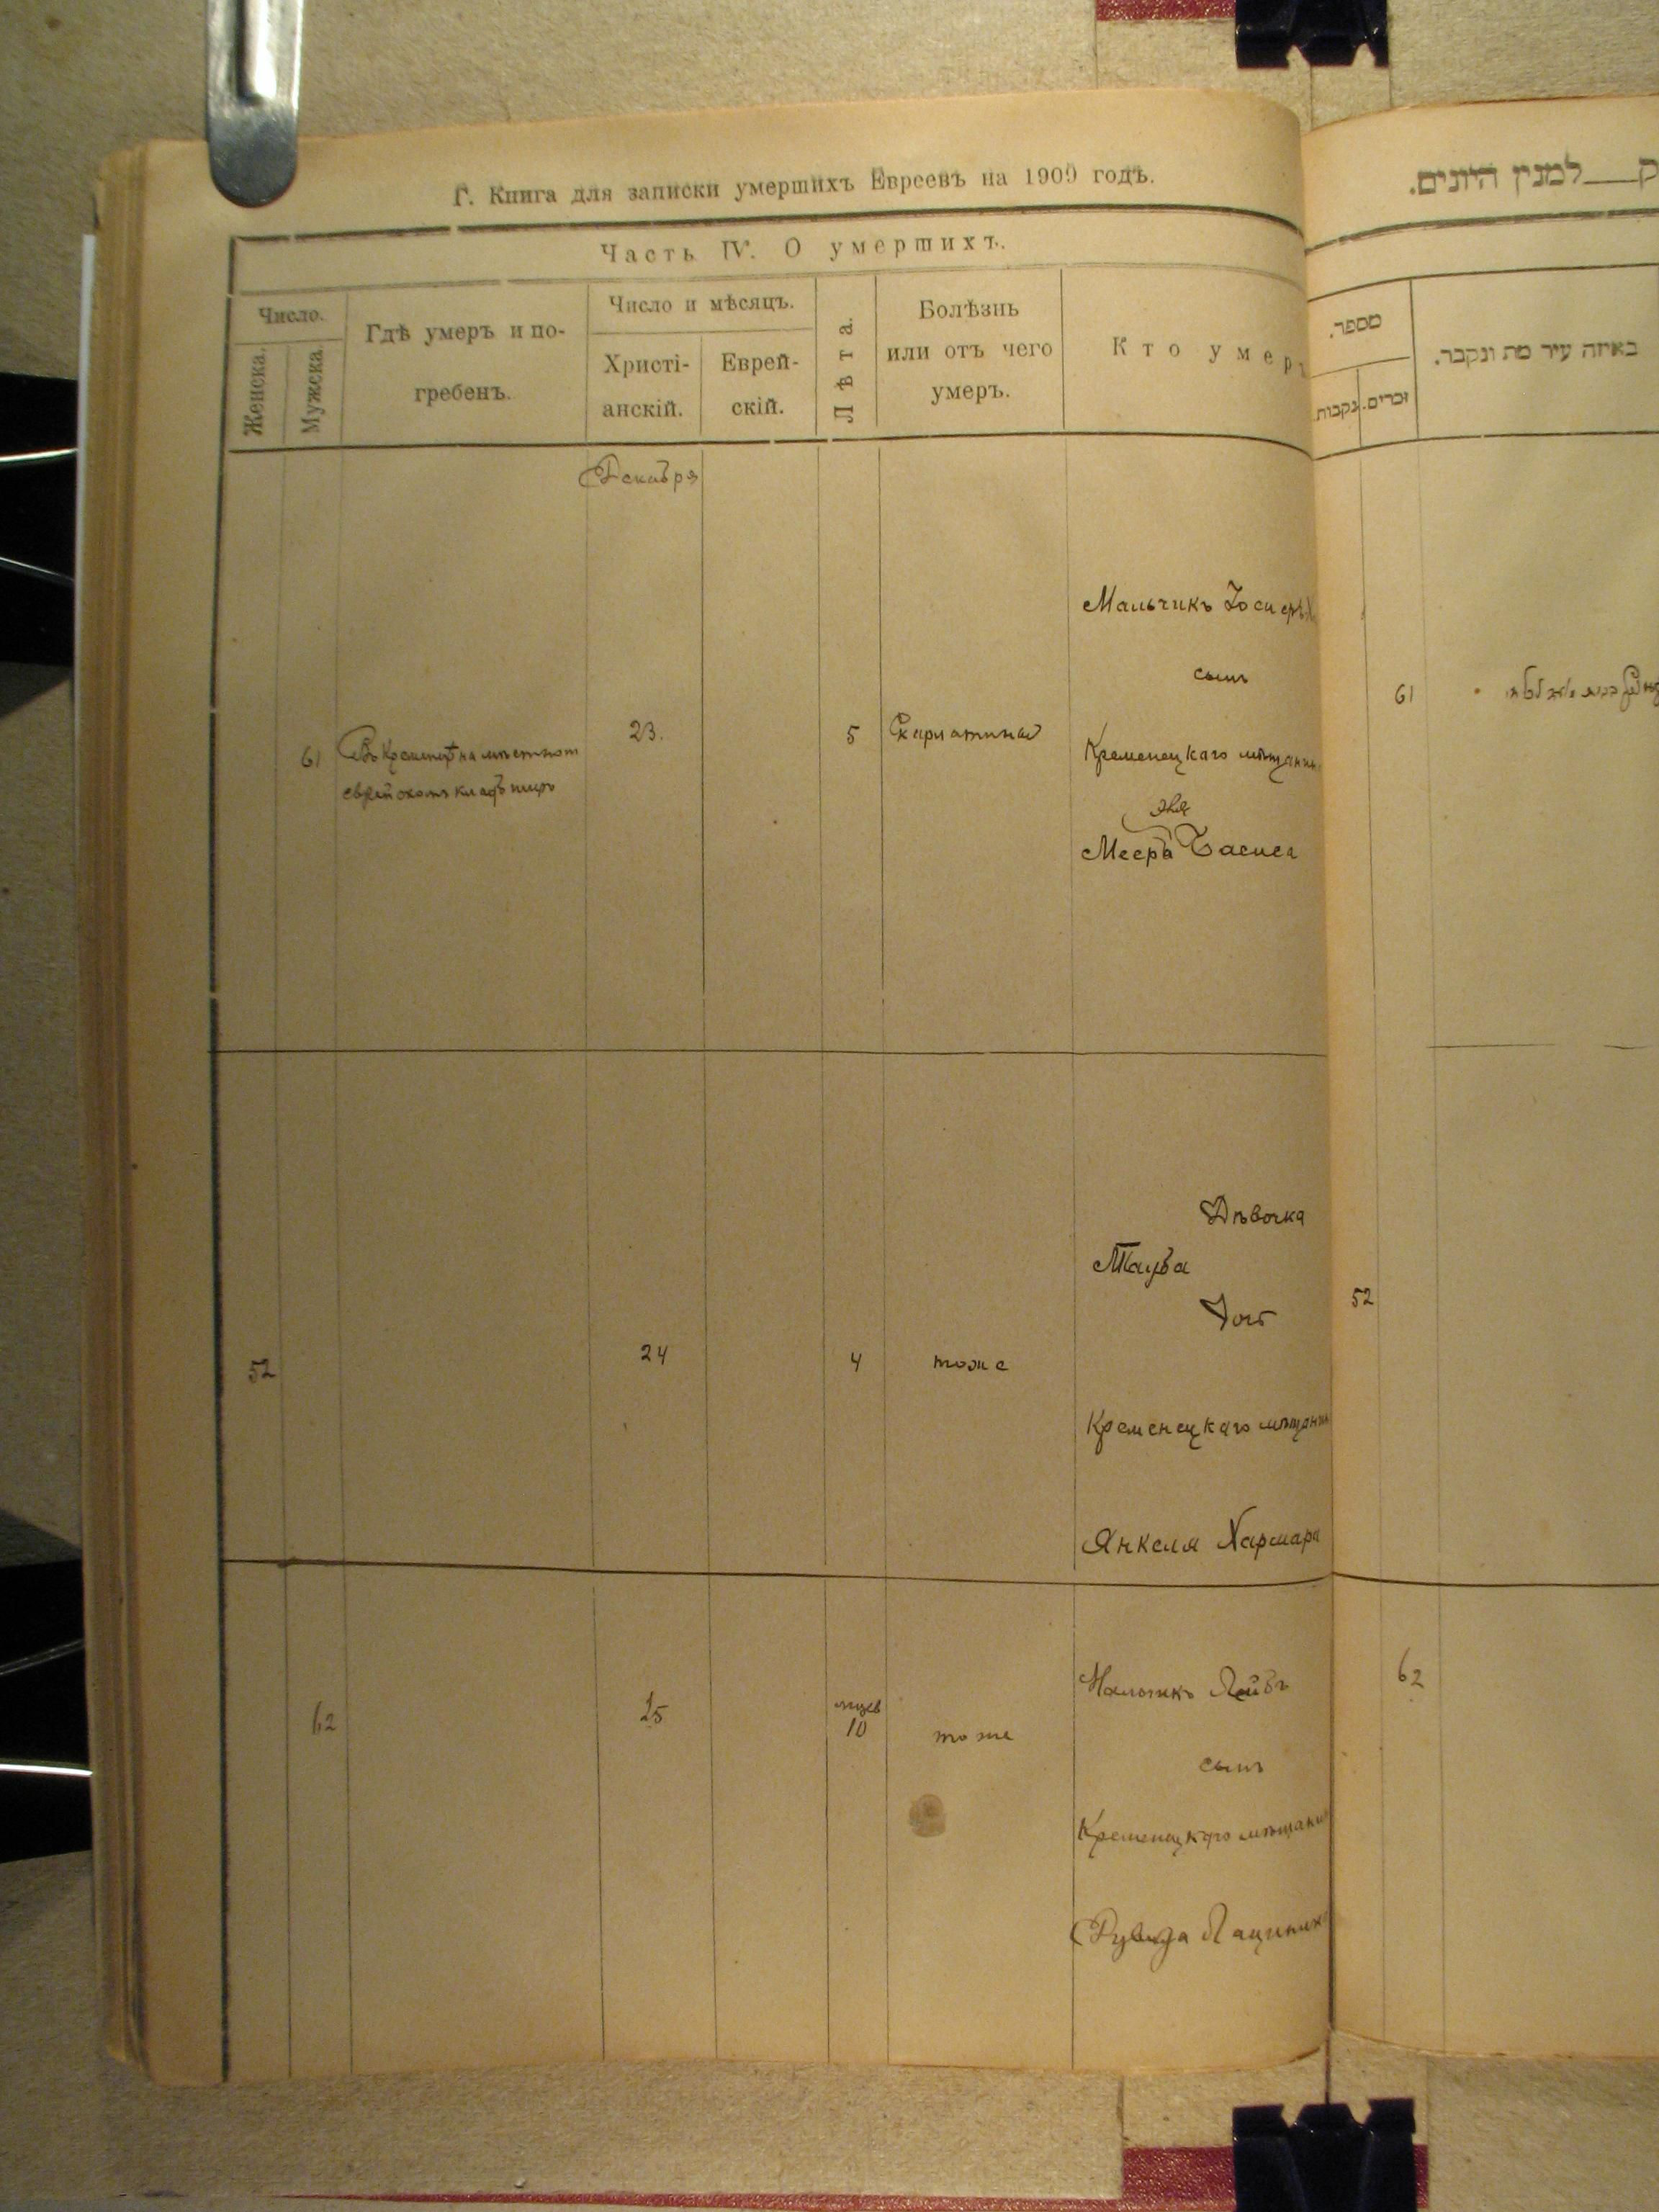 Г. Книга для записки умершихъ Евреевъ на 1909 годъ.
Часть IV. О умершихъ.
Число.
Женска.
Мужска.
Гдѣ умеръ и по-
гребенъ.
Число и мѣсяцъ.
Христі-
анскій.
Еврей-
скій.
Лѣта.
Болѣзнь
или отъ чего
умеръ.
Кто умеръ
Декабря
61
Въ Кременцѣ на мѣстном
еврейскомъ кладбищѣ
23.
5
Скарлатина
Мальчикъ
сынъ
Кременецкаго мѣщанин
Меера
52
24
4
тоже
Дѣвочка
дочь
Кременецкаго мѣщанин
Янкеля
62
25
мцев
10
тоже
Мальчикъ Лейбъ
сынъ
Кременецкаго мѣщанин
למנין היונים.
מספר.
נקבות.
זכרים.
באיזה עיר מת ונקבר.
61
52
62